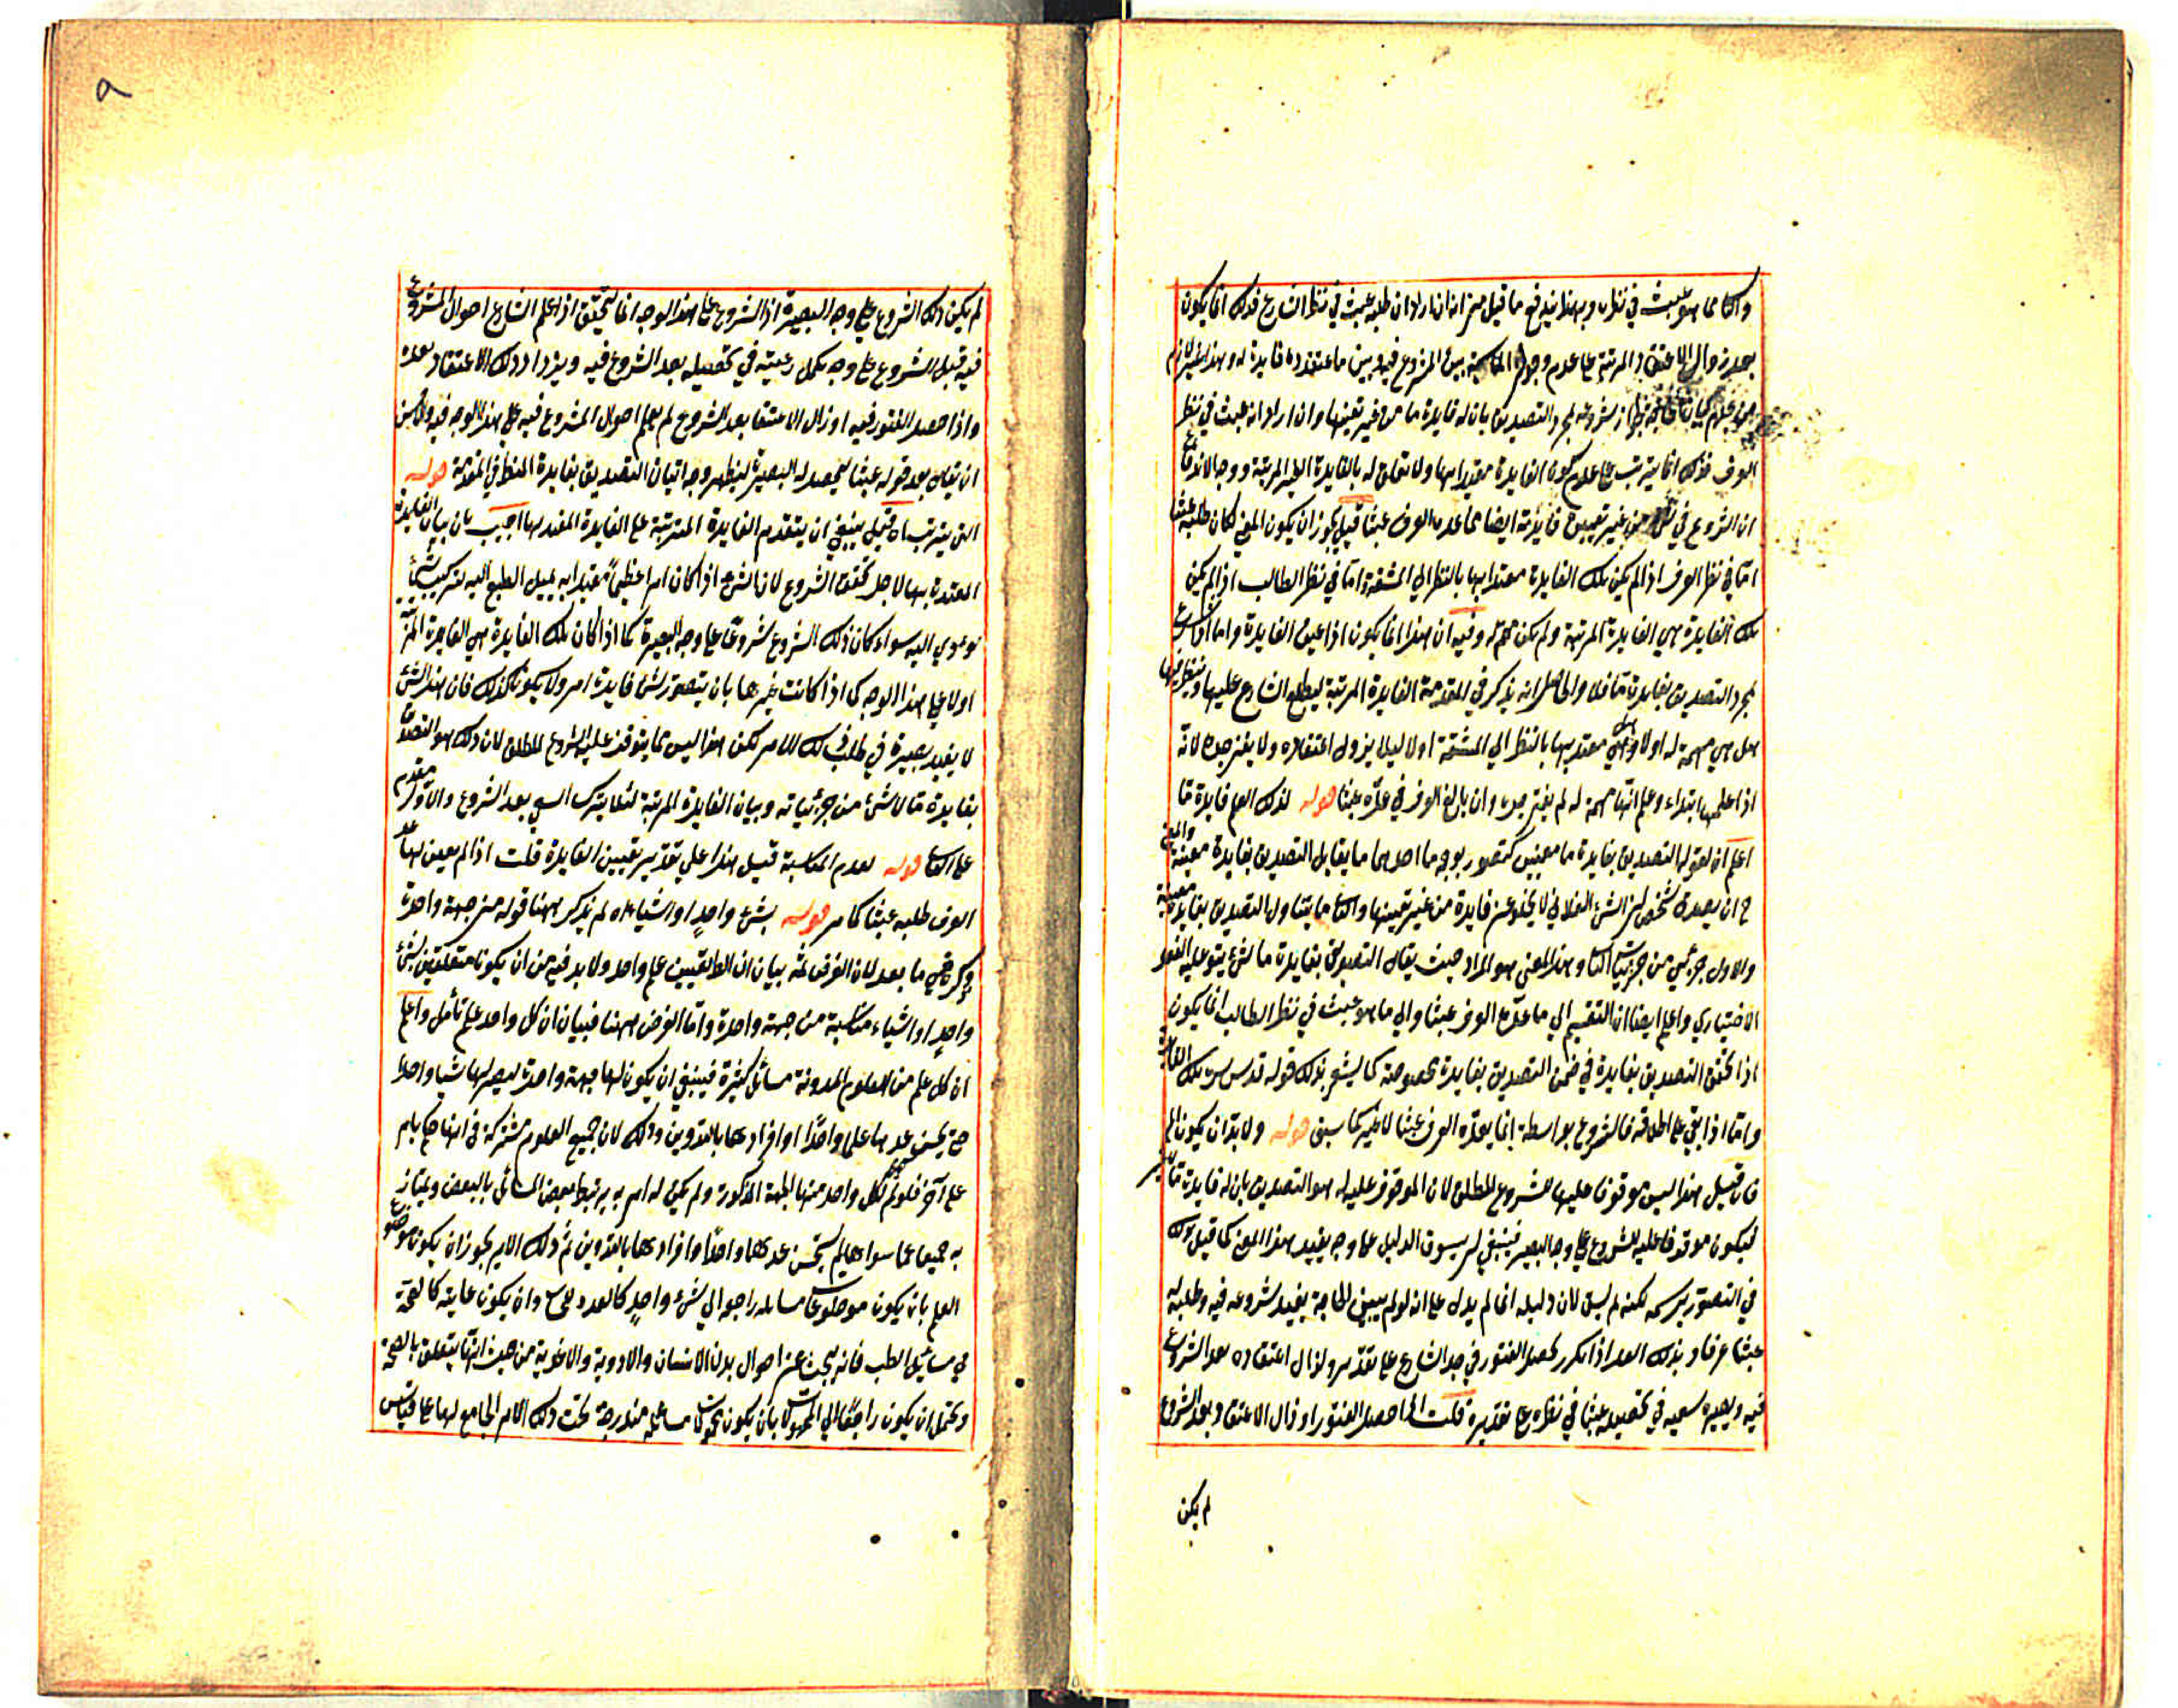 والثانی ما هو عبث فی نظره وبهذا يندفع ما قيل من انه ان اراد ان طلبه عبث فی نظر الشارع فذلك انما يكون
بعد زوال الاعتقاد المرتبة علی عدم وجدان المناسبة بين المشروع فيه وبين ما اعتقده فايدة له وهذا غير لازم
شروعه لمجرد التصديق بان له فايدة ما من غير تعينها وان اراد انه عبث فی نظر
العرف فذلك انما يترتب علی عدم كون الفايدة معتدا بها ولا تعلق له بالفايدة الغير المرتبة ووجه الاندفاع
ان الشروع فی من غير تعيين فايدته ايضا مما عده العرف عبثا قيل يجوز ان يكون المعنی لكان طلبه عبثا
اما فی نظر العرف اذا لم يكن تلك الفايدة معتدا بها بالنظر الی المشقة واما فی نظر الطالب اذا لم يكن
تلك الفايدة هی الفايدة المرتبة ولم يكن مهمة له وفيه ان هذا انما يكون اذا عين الفايدة واما اذا شرع
لمجرد التصديق بفايدة ما فلا والحاصل انه يذكر فی المقدمة الفايدة المرتبة ليطلع الشارع عليها وينظر فيها
هل هی مهمة له اولا وهل هی معتد بها بالنظر الی المشقة اولا ليلا يزول اعتقاده ولا يفتر جده لانه
اذا علمها ابتداء وعلم انها مهمة له لم يفتر جده وان بالغ العرف فی عده عبثا قوله لذلك العلم فايدة ما
اعلم ان لقوله التصديق بفايدة ما معنيين كتصور بوجه ما احدهما ما يقابل التصديق بفايدة معينة والمعنی
ح ان يصدق شخص ان الشئ الفلانی لا يخلو عن فايدة من غير تعيينها والثانی ما يتناول التصديق بفايدة معينة
والاول جزئی من جزئيات الثانی وهذا المعنی هو المراد حيث يقال التصديق بفايدة ما لشئ يتوقف عليه الفعل
الاختياری واعلم ايضا ان التقسيم الی ما عده العرف عبثا والی ما هو عبث فی نظر الطالب انما يكون
اذا تحقق التصديق بفايدة فی ضمن التصديق بفايدة مخصوصة كما يشعر بذلك قوله قدس سره تلك الفايدة
واما اذا بقی علی اطلاقه فالشروع بواسطة انما يعده العرف عبثا لا غير كما سبق قوله ولا بد ان يكون الخ
فان قيل هذا ليس موقوفا عليها للشروع المطلق لان الموقوف عليه له هو التصديق بان له فايدة ما لا غير
فيكون موقوفا عليه للشروع علی وجه البصيرة فينبغی ان يسوق الدليل علی وجه يفيد هذا المعنی كما قيل ذلك
فی التصور برسمه لكنه لم يسق لان دليله انما لم يدل علی انه لو لم يبين الحاجة يفيد شروعه فيه وطلبه له
عبثا عرفا وبذلك العبد اذا تكرر يحصل الفتور فی جد الشارع علی تقدير ولزال اعتقاده بعد الشروع
فيه ويصير سعيه فی تحصيله عبثا فی نظره علی تقديره قلت اذا حصل الفتور او زال الاعتقاد بعد الشروع
لم يكن
٩
لم يكن ذلك الشروع علی وجه البصيرة اذ الشروع علی هذا الوجه انما يتحقق اذا علم الشارع احوال المشروع
فيه قبل الشروع علی وجه يكمل رغبته فی تحصيله بعد الشروع فيه ويزداد ذلك الاعتقاد بعده
واذا حصل الفتور فيه او زال الاعتقاد بعد الشروع لم يعلم احوال المشروع فيه علی هذا الوجه فيه والاحسن
ان يقال بعد قوله عبثا ليحصل له البصيرة ليظهر وجه اتيان التصديق بفايدة المنطق فی المقدمة قوله
التی يترتب اه قيل ينبغی ان يتقدم الفايدة المترتبة علی الفايدة المعتد بها اجيب بان بيان الفايدة
المعتدة بها لاجل تحقق الشروع لان الشئ اذا كان امرا عظيما معتدا به يميل الطبع اليه
نوعوی اليه سواء كان ذلك الشروع شروعا علی وجه البصيرة كما اذا كان تلك الفايدة هی الفايدة المرتبة
اولا علی هذا الوجه كما اذا كانت غيرها بان يتصور لشئ فايدة امر ولا يكون كذلك فان هذا الشئ
لا يفيد بصيرة فی طلب ذلك الامر لكن هذا ليس مما يتوقف عليه الشروع المطلق لان ذلك هو التصديق
بفايدة ما لا شئ من جزئياته وبيان الفايدة المرتبة لئلا يترك السعی بعد الشروع والاول مقدم
علی الثانی قوله لعدم المناسبة قيل هذا علی تقدير تعيين الفايدة قلت اذا لم يعين لها عد
العرف طلبه عبثا كما مر قوله بشئ واحد او اشياء اه لم يذكر ههنا قوله من جهة واحدة
وذكره فی ما بعد لان الغرض ثمه بيان ان الطائفتين علم واحد ولا بد فيه من ان يكونا متعلقتين بشئ
واحد او اشياء متناسبة من جهة واحدة واما الغرض ههنا فبيان ان كل واحد علم تأمل واعلم
ان كل علم من العلوم المدونة مسائل كثيرة فينبغی ان يكون لها جهة واحدة ليصير لها شيا واحدا
حتی يحسن عدها علما واحدا وافرادها بالتدوين وذلك لان جميع العلوم مشتركة فی انها احكام
علی آخر فلو لم يكن لكل واحد منها الجهة المذكورة ولم يكن له امر به يرتبط بعض المسائل بالبعض ويمتاز
به جميعا عما سواها لم يستحسن عدها واحدا وافرادها بالتدوين ثم ذلك الامر يجوز ان يكون موضوع
العلم بان يكون موضوعات مسايله راجعا الی شئ واحد كالعدد للحساب وان يكون غايته كالصحة
فی مسائل الطب فانه يبحث عن احوال بدن الانسان والادوية والاغذية من حيث انها يتعلق بالصحة
ويحتمل ان يكون راجعا الی المحمولات بان يكون محمولات مسائله مندرجة تحت ذلك الامر الجامع لها علی قياس